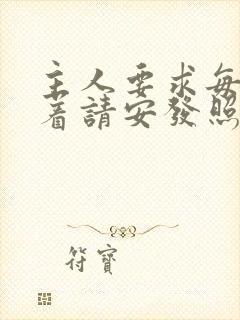 主人要求每
着請安發照
符寶